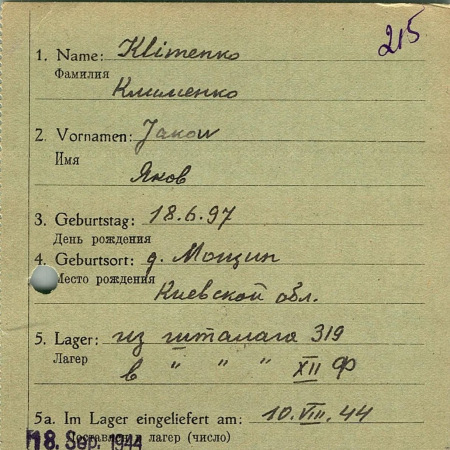 215
1. Name: Klimenko
Фамилия
Клименко
2. Vornamen: Jakow
Имя
Яков
3. Geburtstag: 18.6.97
День рождения
4. Geburtsort: д. Мощин
Место рождения
Киевской обл.
5. Lager: из шталага 319
Лагер
в " " " XII Ф
5a. Im Lager eingeliefert am: 10.VIII.44
Доставлен в лагер (число)
18. Sep. 1944